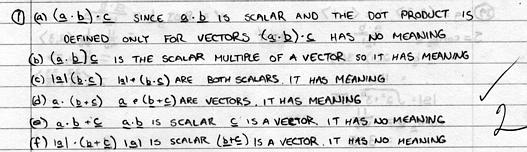 ① (a) (a·b)·c SINCE a·b IS SCALAR AND THE DOT PRODUCT IS
DEFINED ONLY FOR VECTORS (a·b)·c HAS NO MEANING
(b) (a·b)c IS THE SCALAR MULTIPLE OF A VECTOR SO IT HAS MEANING
(c) |a|(b·c) |a| & (b·c) ARE BOTH SCALARS, IT HAS MEANING
(d) a·(b+c) a & (b+c) ARE VECTORS, IT HAS MEANING
(e) a·b+c a·b IS SCALAR c IS A VECTOR IT HAS NO MEANING
(f) |a|·(b+c) |a| IS SCALAR (b+c) IS A VECTOR. IT HAS NO MEANING
2